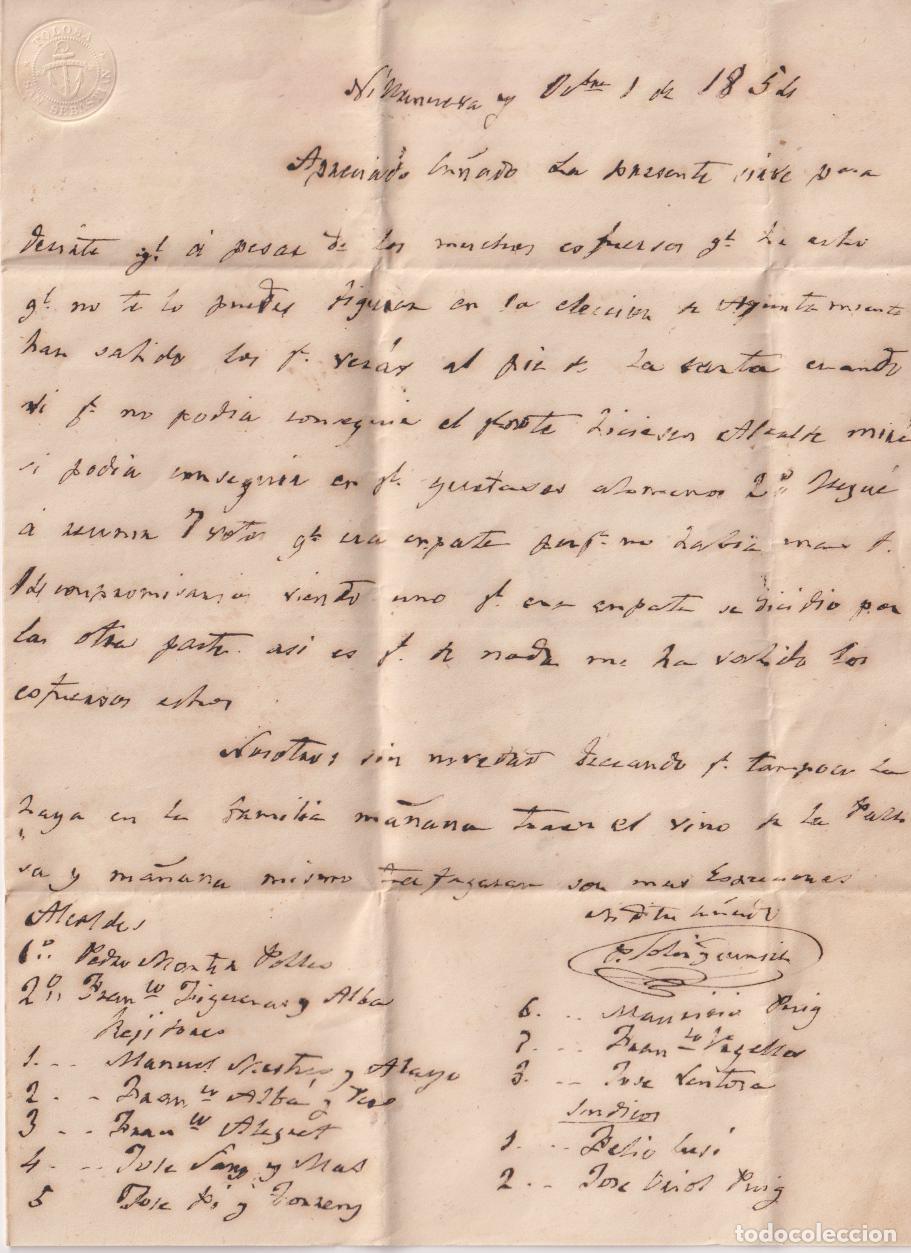 TOLOSA
SAN SEBASTIAN
Villanueva y Octbre 1 de 185
Apreciado Cuñado La presente sirve para
decirte qe á pesar de los muchos esfuersos qe he echo
qe no te lo puedes figurar en la eleccion de Ayuntamiento
han salido los qe verás al pie de la carta cuando
vi qe no podia conseguir el qe te hiciesen Alcalde miré
si podia conseguir en qe quetases alomenos 2º llegué
á reunir 7 votos qe era empate porqe no habia mas qe
compromisarios viendo uno qe era empate se dicidio por
la otra parte asi es qe de nada me ha valido los
esfuersos echos
Nosotros sin novedad deceando qe tampoco la
haya en la familia mañana traen el vino de la Pall
sa y mañana mismo son mas Espreciones
de tu Cuñado
Alcaldes
1º Pedro
2º Franco Figueras y Alba
Rejidores
1 Manuel Mestres y
2 Franco Albá y
3 Franco Aleguet
4 Jose Sans y Mas
5 Jose Pi y Torrens
6 Mauricio Puig
7 Franco
8 Jose Ventosa
Sindicos
1 Felio
2 Jose Oriol Puig
todocoleccion